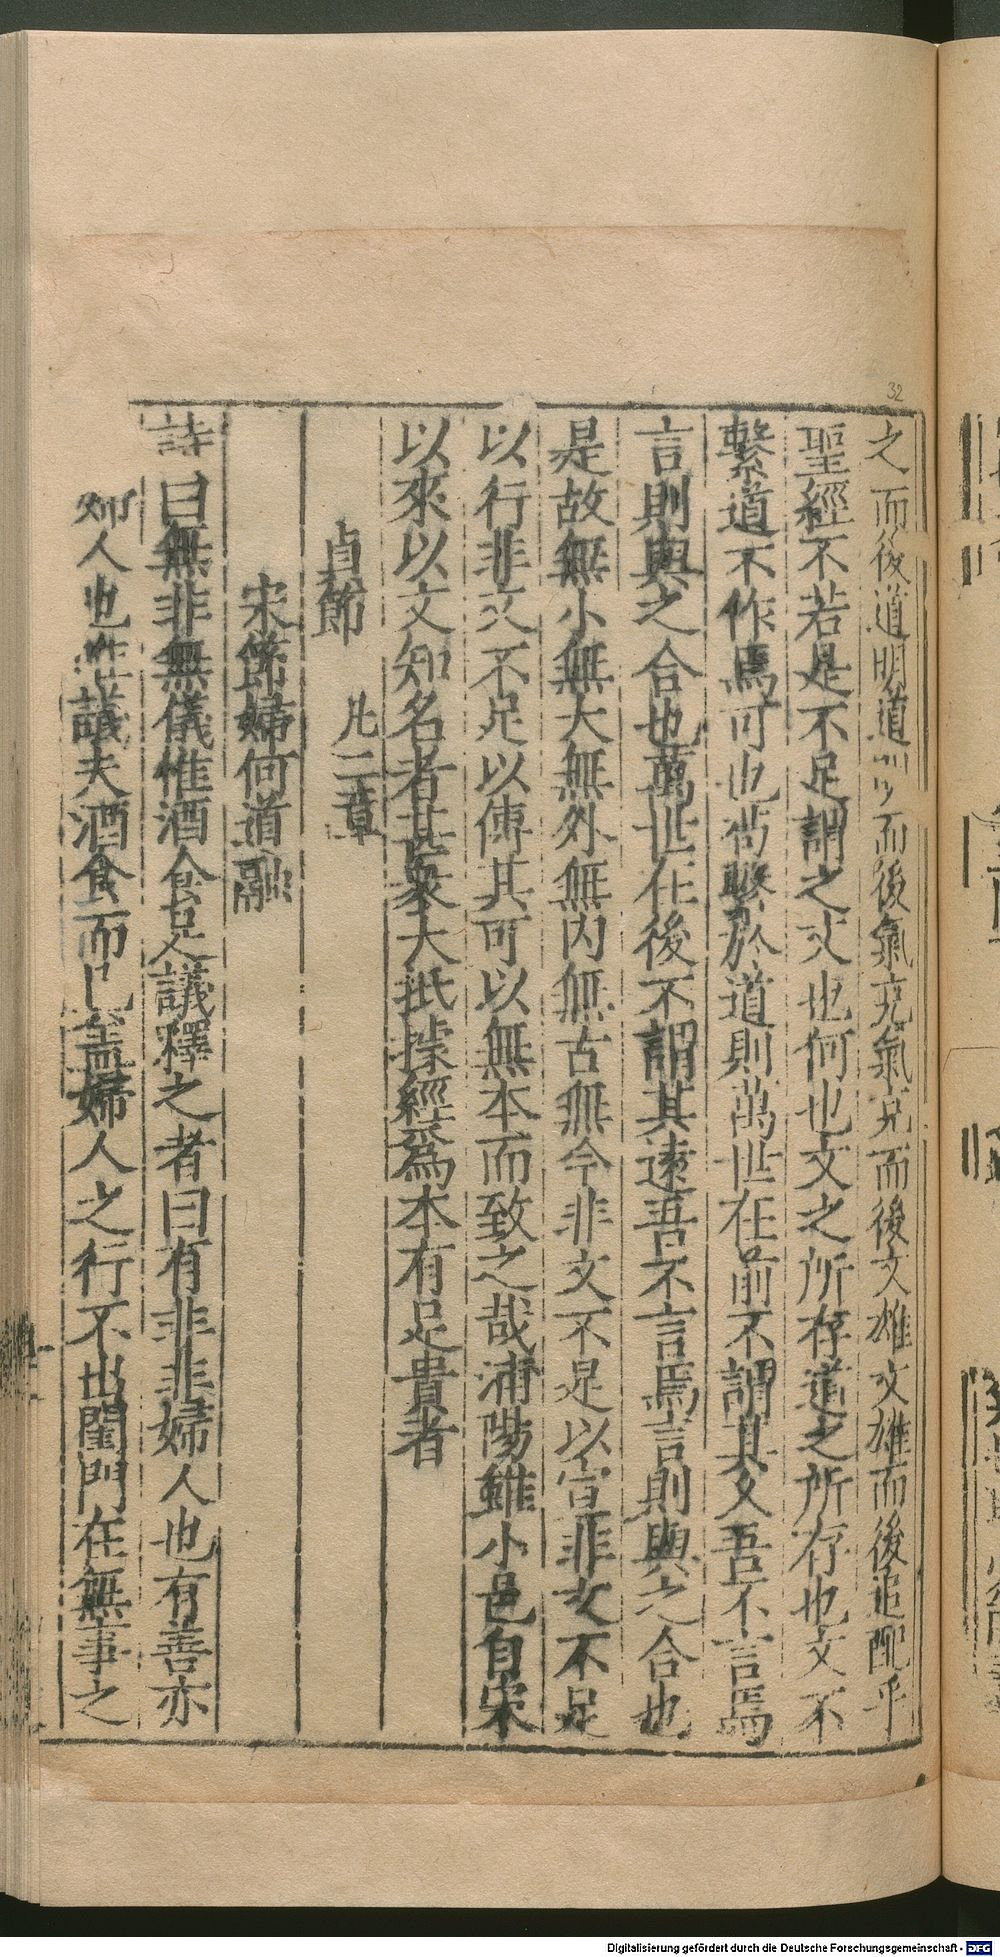 32
之而後道明道明而後氣充氣充而後文雄文雄而後追配乎
聖經不若是不足謂之文也何也文之所存道之所存也文不
繫道不作焉可也苟繫於道則萬世在前不謂其久吾不言焉
言則與之合也萬世在後不謂其遠吾不言焉言則與之合也
是故無小無大無外無内無古無今非文不足以宣非文不足
以行非文不足以傳其可以無本而致之哉浦陽雖小邑自宋
以來以文知名者甚衆大抵據經爲本有足貴者
貞節 凡二章
宋節婦何道融
詩曰無非無儀惟酒食是議釋之者曰有非非婦人也有善亦
非婦人也惟議夫酒食而已盖婦人之行不出閨門在無事之
Digitalisierung gefördert durch die Deutsche Forschungsgemeinschaft - DFG